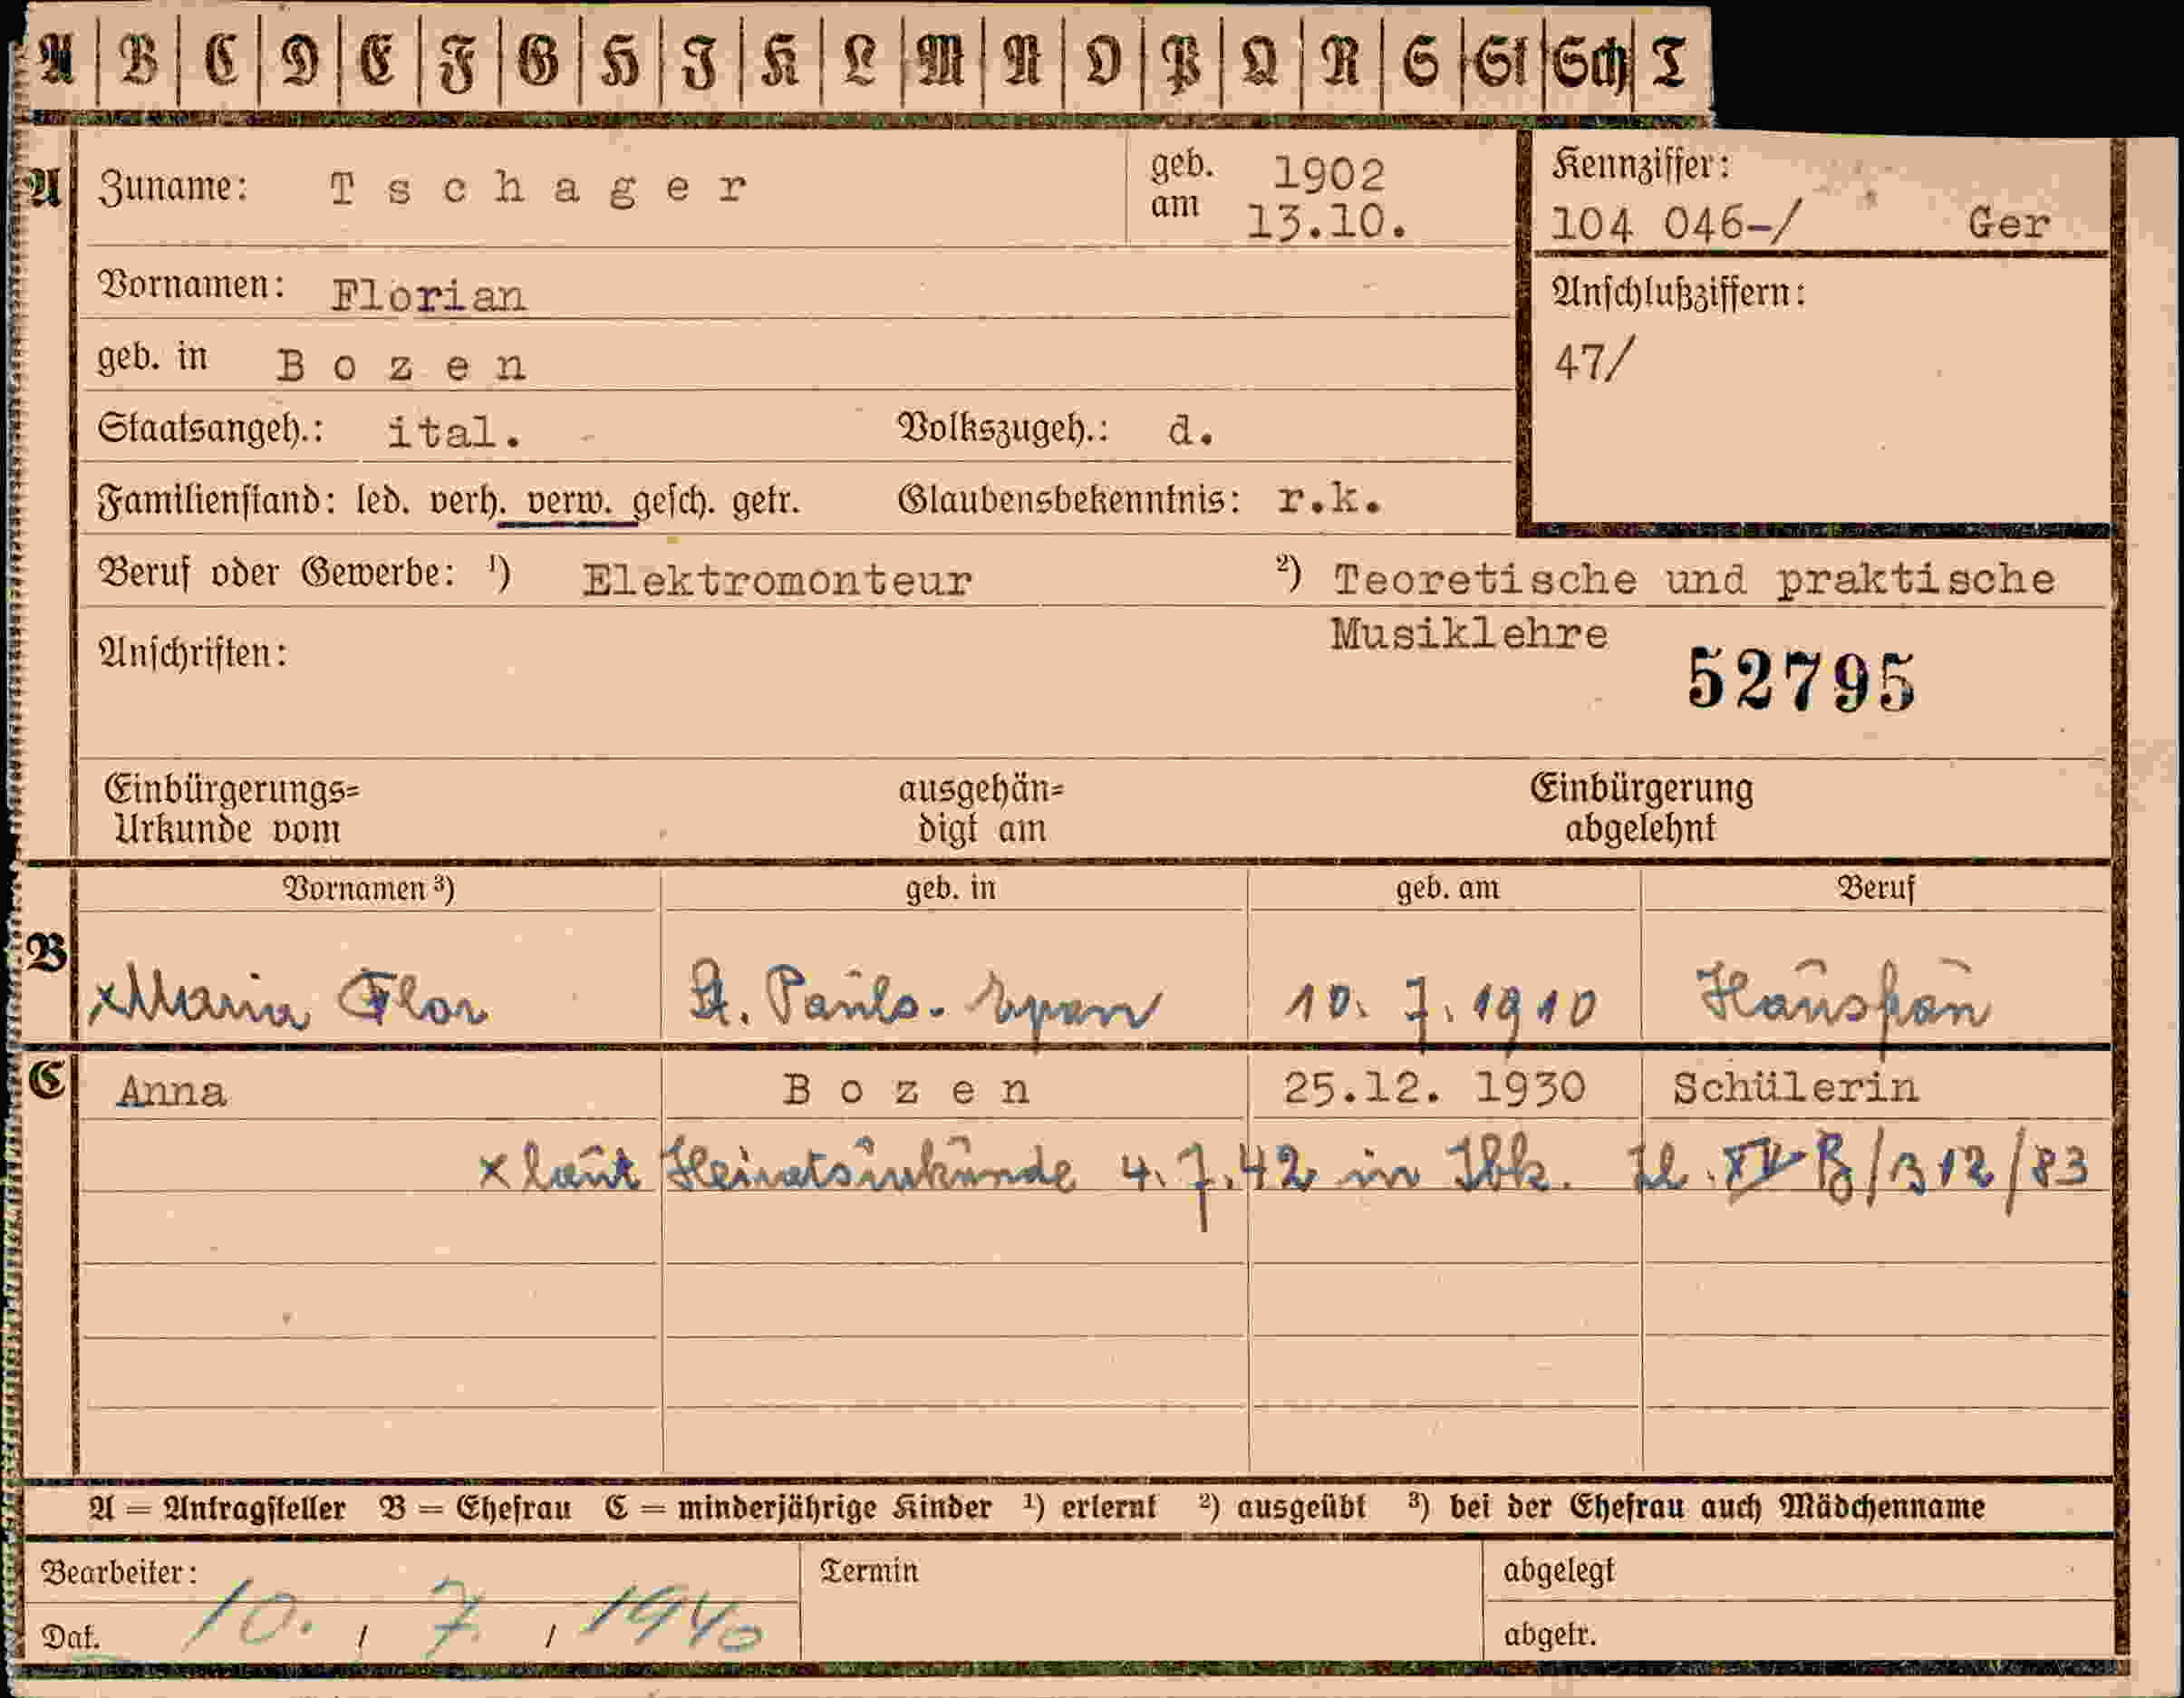 A B C D E F G H I K L M N O P Q R S St Sch T
A Zuname: Tschager geb. am 1902 13.10. Kennziffer:
104 046-/ Ger
Vornamen: Florian Anschlußziffern:
geb. in Bozen 47/
Staatsangeh.: ital. Volkszugeh.: d.
Familienstand: led. verh. verw. gesch. getr. Glaubensbekenntnis: r.k.
Beruf oder Gewerbe: ¹) Elektromonteur ²) Teoretische und praktische
Musiklehre
Anschriften: 52795
Einbürgerungs= ausgehän= Einbürgerung
Urkunde vom digt am abgelehnt
Vornamen ³) geb. in geb. am Beruf
B xMaria Flor St. Pauls-Eppan 10. 7. 1910 Hausfrau
C Anna Bozen 25.12. 1930 Schülerin
x laut Heiratsurkunde 4.7.42 in Ibk. Zl. IV B/312/83
A = Antragsteller B = Ehefrau C = minderjährige Kinder ¹) erlernt ²) ausgeübt ³) bei der Ehefrau auch Mädchenname
Bearbeiter: Termin abgelegt
Dat. 10. / 7. / 1940 abgetr.